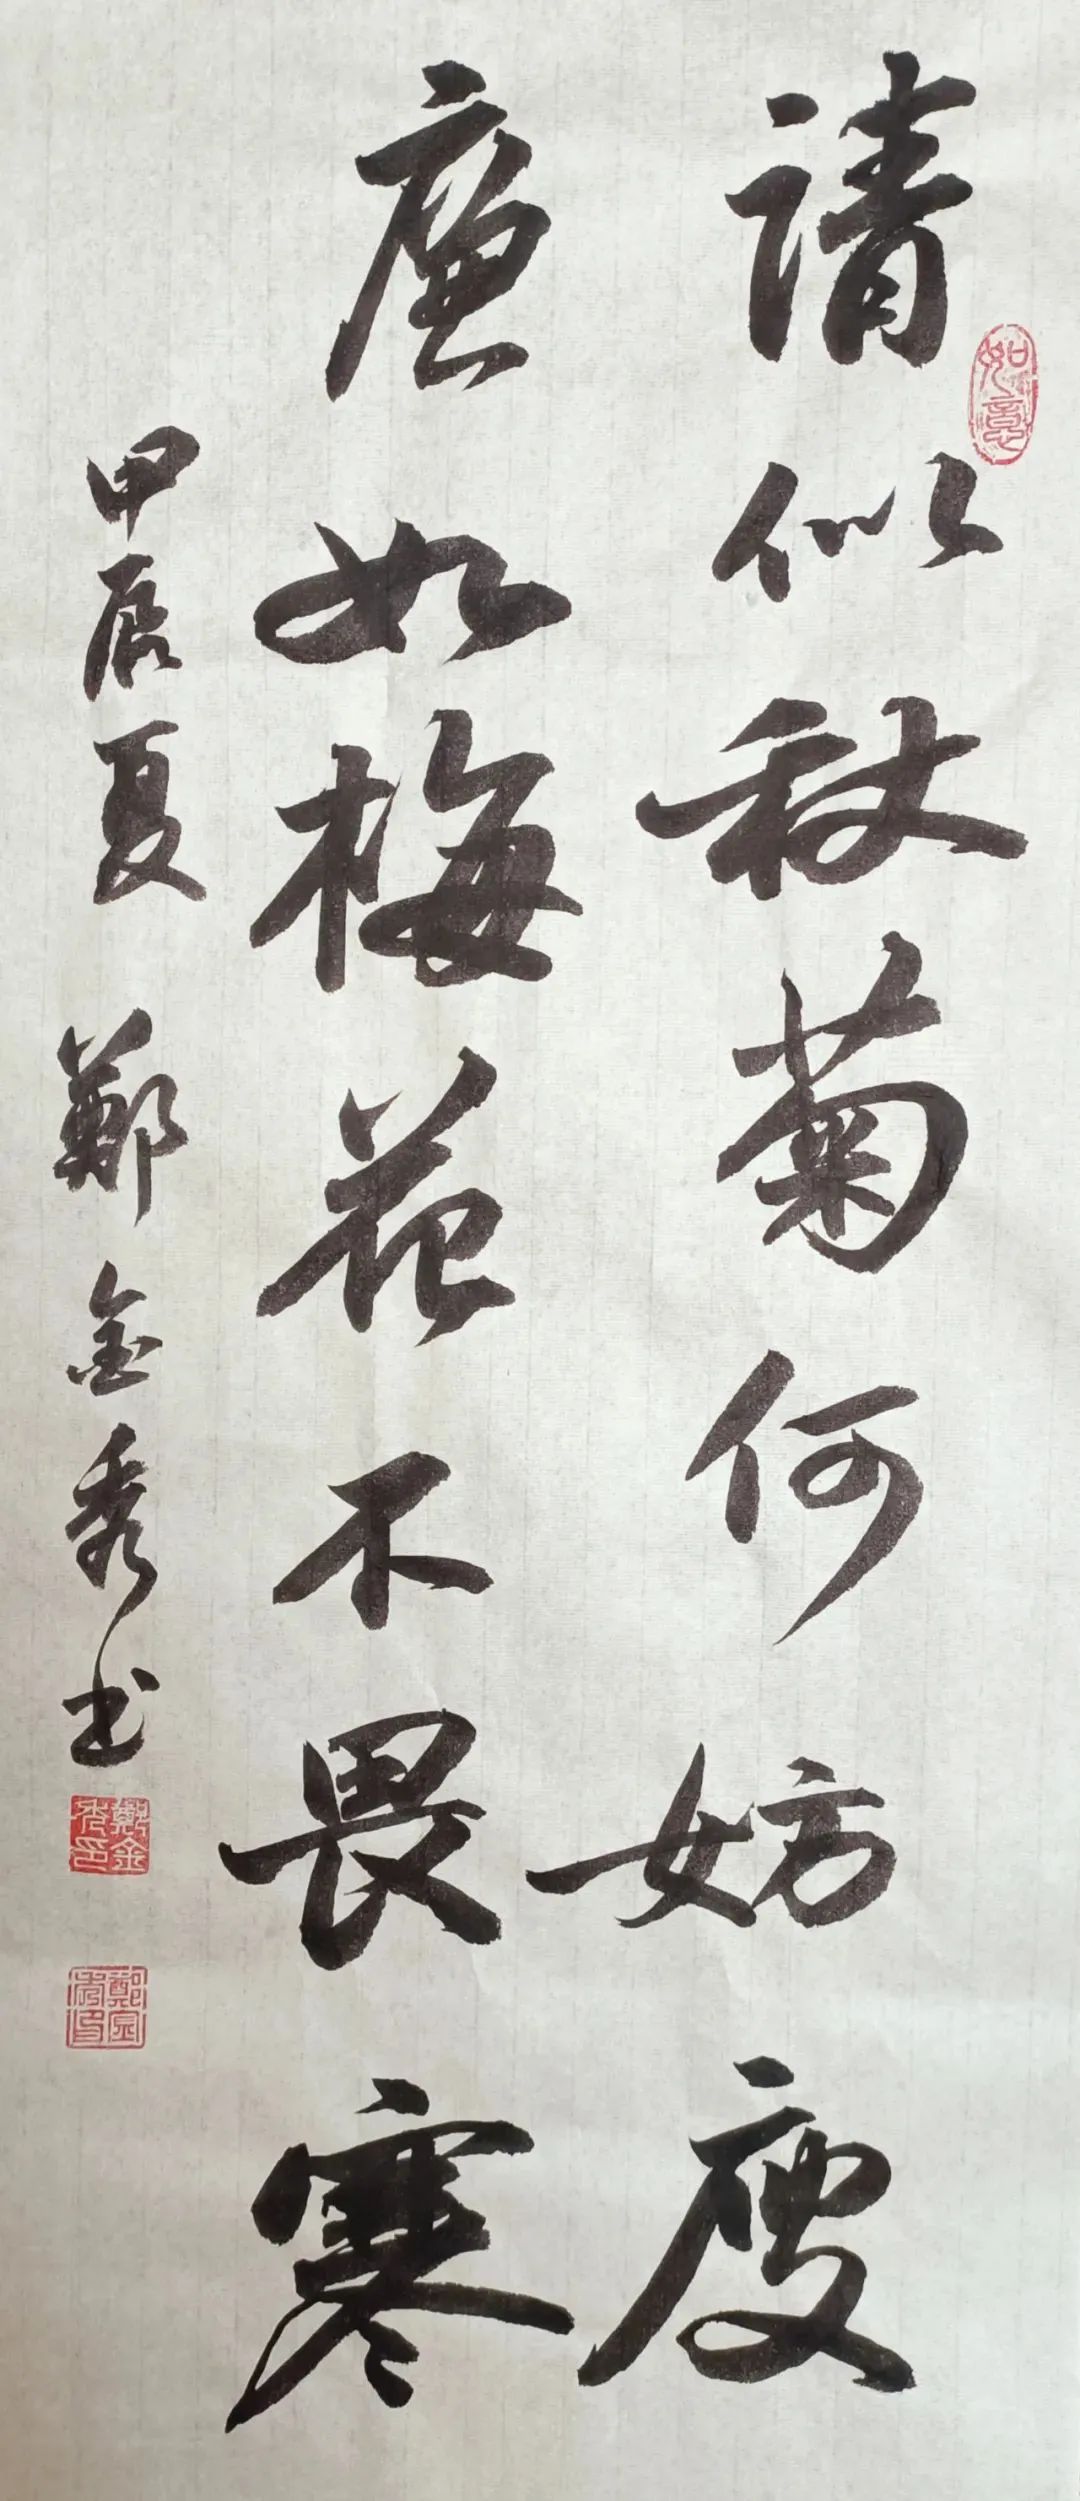 请似秋菊何妨瘦
廉如梅花不畏寒
甲辰夏 鄭金秀书
如意
鄭金秀印
鄭金秀印